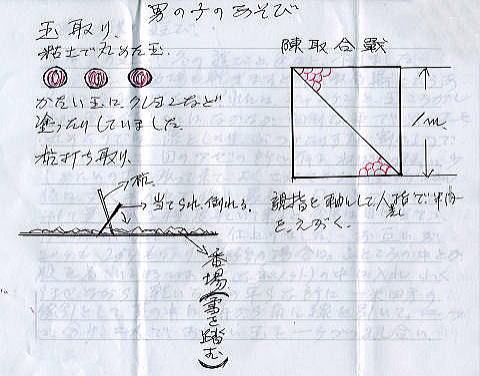 男の子のあそび
玉取り.
粘土で丸めた玉.
かたい玉に.クレヨンなど
塗ったりしていました.
杭打ち取り.
杭.
当てられ.倒れる.
番場(雪を踏む)
陳取合戰
1m.
親指を軸にして人差指で半円
を.えがく.